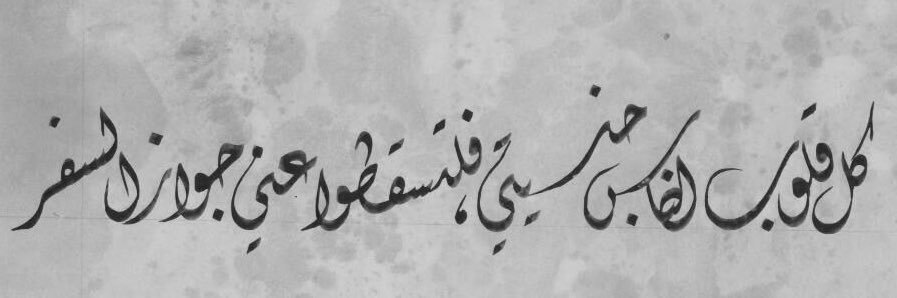 كل قلوب الناس جنسيتي فلتسقطوا عني جواز السفر